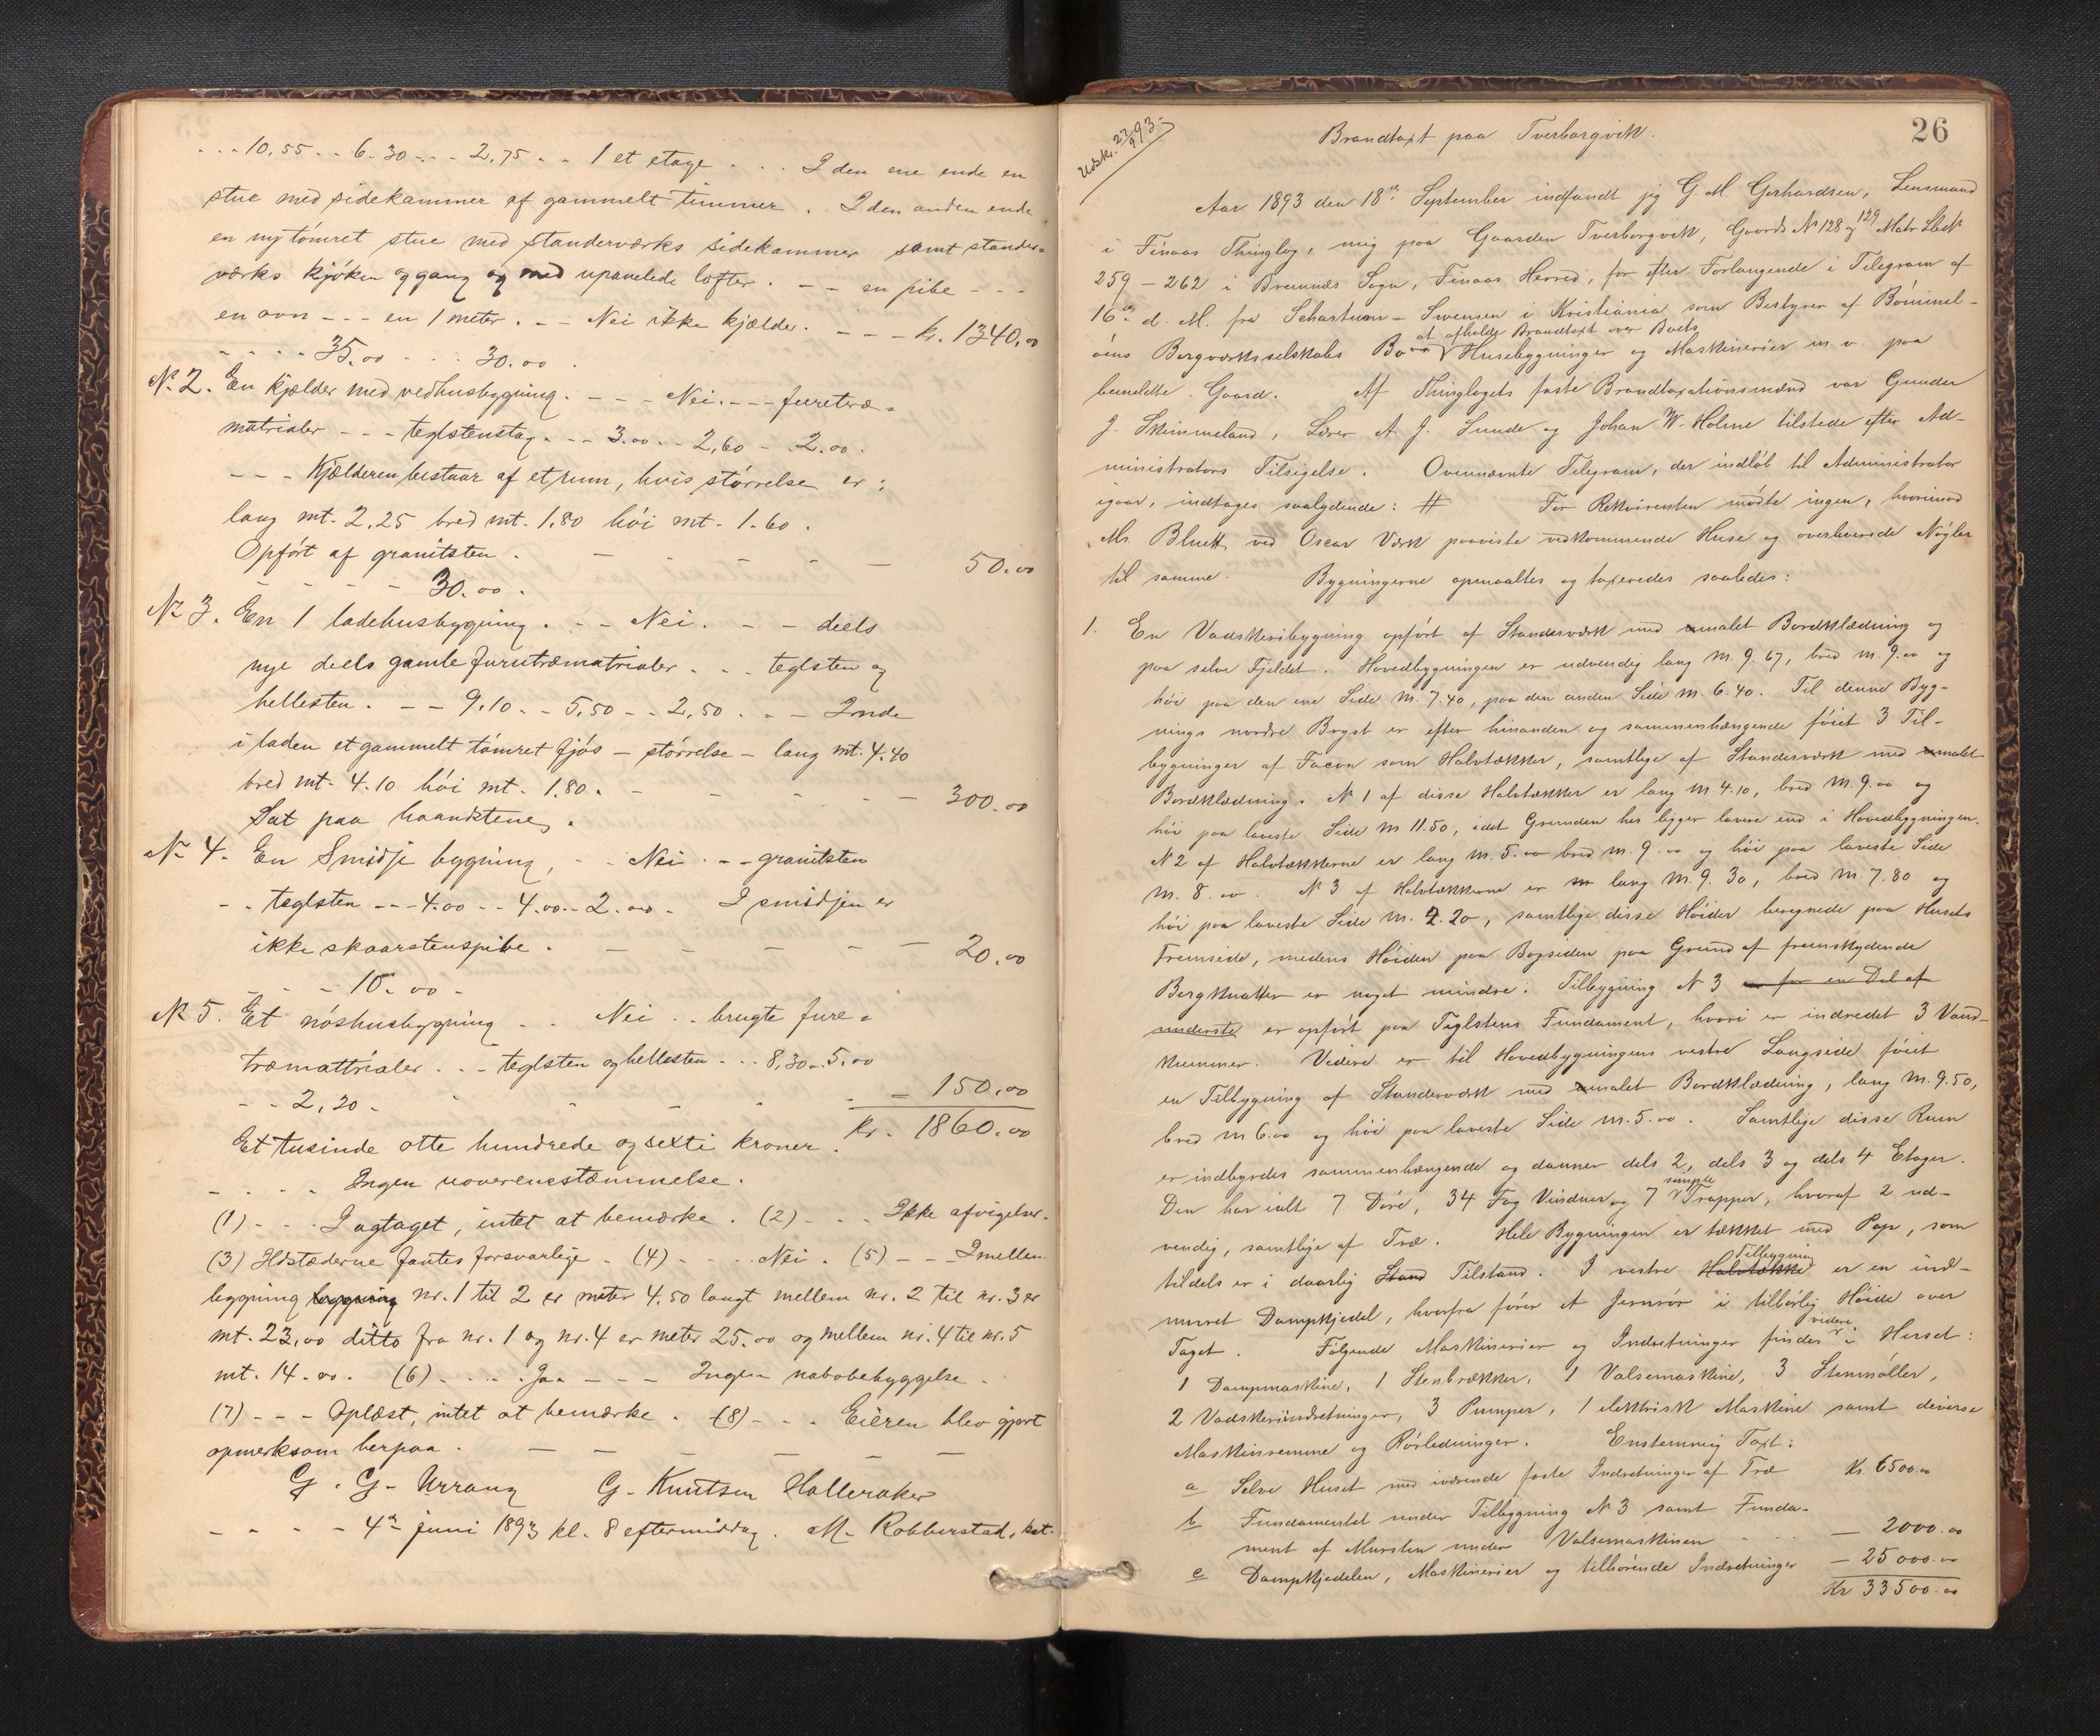 - - - 10,55 - - 6.30 - - - 2,75 - - 1 et etage - - - I den ene ende en
stue med sidekammer af gammelt tømmer. I den anden ende
en ny tømret stue med standerværks sidekammer samt stander=
værks kjøken og gang og med upanelede lofter. - - en pibe - - -
en ovn - - - en 1 meter. - - Nei ikke kjælder. - - - Kr. 1340,00
- - - - 35.00 - - - 30.00.
No 2. En kjælder med vedhusbygning. - - - Nei. - - - furetræ=
matrialer - - - teglstenstag. - - 3.00 - - 2,60 - - 2.00.
- - - Kjælderen bestaar af et rum, hvis størrelse er:
lang mt. 2,25 bred mt. 1,80 høi mt. 1.60.
Opført af granitsten. - - - - - 50.00
- - - - - 30.00.
No 3. En 1 ladehusbygning. - - Nei. - - deels
nye deels gamle furutræmatrialer. - - teglsten og
hellesten. - - 9,10 - - 5,50 - - 2,50. - - Inde
i laden et gammelt tømret fjøs - størrelse - lang mt. 4.40
bred mt. 4.10 høi mt. 1,80. - - - - - 300.00
Sat paa haandstene.
No 4. En Smidje bygning, - - Nei. - - granitsten
- - teglsten - - - 4.00 - - 4.00 - - 2.00. I smidjen er
ikke skaarstenspibe. - - - - - 20.00
- - - 10.00 -
No 5. Et nøshusbygning - - Nei - - brugte fure=
træmattrialer. - - teglsten og hellesten - - - 8,30 - - 5.00
- - 2,20 - - - - - - 150.00
Kr. 1860.00
Et tusinde otte hundrede og sexti kroner.
- - - - Ingen uoverensstemmelse.
(1) - - - Iagtaget, intet at bemærke. (2) - - - Ikke afvigelser.
(3) Ildstæderne fantes forsvarlige. (4) - - - - Nei. (5) - - Imellem
bygning bygning nr. 1 til 2 er meter 4.50 langt mellem nr. 2 til nr. 3 er
mt. 23,00 ditto fra nr. 1 og nr. 4 er meter 25.00 og mellem nr. 4 til nr. 5
mt. 14.00. (6) - - - - Jaa - - - Ingen nabobebyggelse.
(7) - - - Oplæst, intet at bemærke. (8) - - - Eieren blev gjort
opmerksom herpaa.
G. G. Urrang G. Knutsen Halleraker
- - - - 4de juni 1893 kl. 8 eftermiddag. M. Robberstad, kst.
26
Udskr. 22/9 93.
Brandtaxt paa Tverborgvik.
Aar 1893 den 18de September indfandt jeg G. M. Gerhardsen, Lensmand
i Finaas Thinglag, mig paa Gaarden Tverborgvik, Gaards No 128 og 129 Matr. Lbn
259 - 262 i Bremnæs Sogn, Finaas Herred, for efter Forlangende i Telegram af
16de d. M. fra Schartum-Swensen i Kristiania som Bestyrer af Bømmel-
øens Bergværksselskabs Bo at afholde Brandtaxt over Boets Husebygninger og Maskinerier m. v. paa
bemeldte Gaard. Af Thinglagets faste Brandtaxationsmænd var Gunder
J. Skimmeland, Lærer A. J. Sunde og Johan W. Holme tilstede efter Ad-
ministrators Tilsigelse. Ovennævnte Telegram, der indløb til Administrator
igaar, indtages saalydende: # For Rekvirenten mødte ingen, hvorimod
Mr. Bluett ved Oscar Værk paaviste vedkommende Huse og overleverede Nøgler
til samme. Bygningerne opmaaltes og taxeredes saaledes:
1. En Vadskeribygning opført af Standerværk med umalet Bordklædning og
paa selve Fjeldet. Hovedbygningen er udvendig lang m. 9.67, bred m. 9.00 og
høi paa den ene Side m. 7.40, paa den anden Side m. 6.40. Til denne Byg-
nings nordre Bryst er efter hinanden og sammenhængende føiet 3 Til-
bygninger af Facon som Halvtækker, samtlige af Standerværk med umalet
Bordklædning. No 1 af disse Halvtækker er lang m. 4.10, bred m. 9.00 og
høi paa laveste Side m 11.50, idet Grunden her ligger lavere end i Hovedbygningen.
No 2 af Halvtækkerne er lang m. 5.00 bred m. 9.00 og høi paa laveste Side
m. 8.00. No 3 af Halvtækkerne er m lang m. 9.30, bred m. 7.80 og
høi paa laveste Side m. 2.20, samtlige disse Høider beregnede paa Husets
Fremside, medens Høiden paa Bagsiden paa Grund af fremskydende
Bergknatter er noget mindre. Tilbygning No 3 er for en Del af
underste er opført paa Teglstens Fundament, hvori er indredet 3 Vand-
kummer. Videre er til Hovedbygningens vestre Langside føiet
en Tilbygning af Standerværk med umalet Bordklædning, lang m. 9.50,
bred m 6.00 og høi paa laveste Side m. 5.00. Samtlige disse Rum
er indbyrdes sammenhængende og danner dels 2, dels 3 og dels 4 Etager.
Den har ialt 7 Døre, 34 Fag Vinduer og 7 simple Trapper, hvoraf 2 ud-
vendig, samtlige af Træ. Hele Bygningen er tækket med Pap, som
tildels er i daarlig Stand Tilstand. I vestre Halvtække Tilbygning er en ind-
muret Dampkjedel, hvorfra fører et Jernrør i tilbørlig Høide over
Taget. Følgende Maskinerier og Indretninger findes videre i Huset:
1 Dampmaskine, 1 Stenbrækker, 1 Valsemaskine, 3 Stenmøller,
2 Vadskeriindretninger, 3 Pumper, 1 elektrisk Maskine samt diverse
Maskinremme og Rørledninger. Enstemmig Taxt:
a Selve Huset med iværende faste Indretninger af Træ Kr. 6500.00
b Fundamentet under Tilbygning No 3 samt Funda-
ment af Mursten under Valsemaskinen - - - 2000.00
c Dampkjedelen, Maskinerier og tilhørende Indretninger - 25000.00
Kr 33500.00